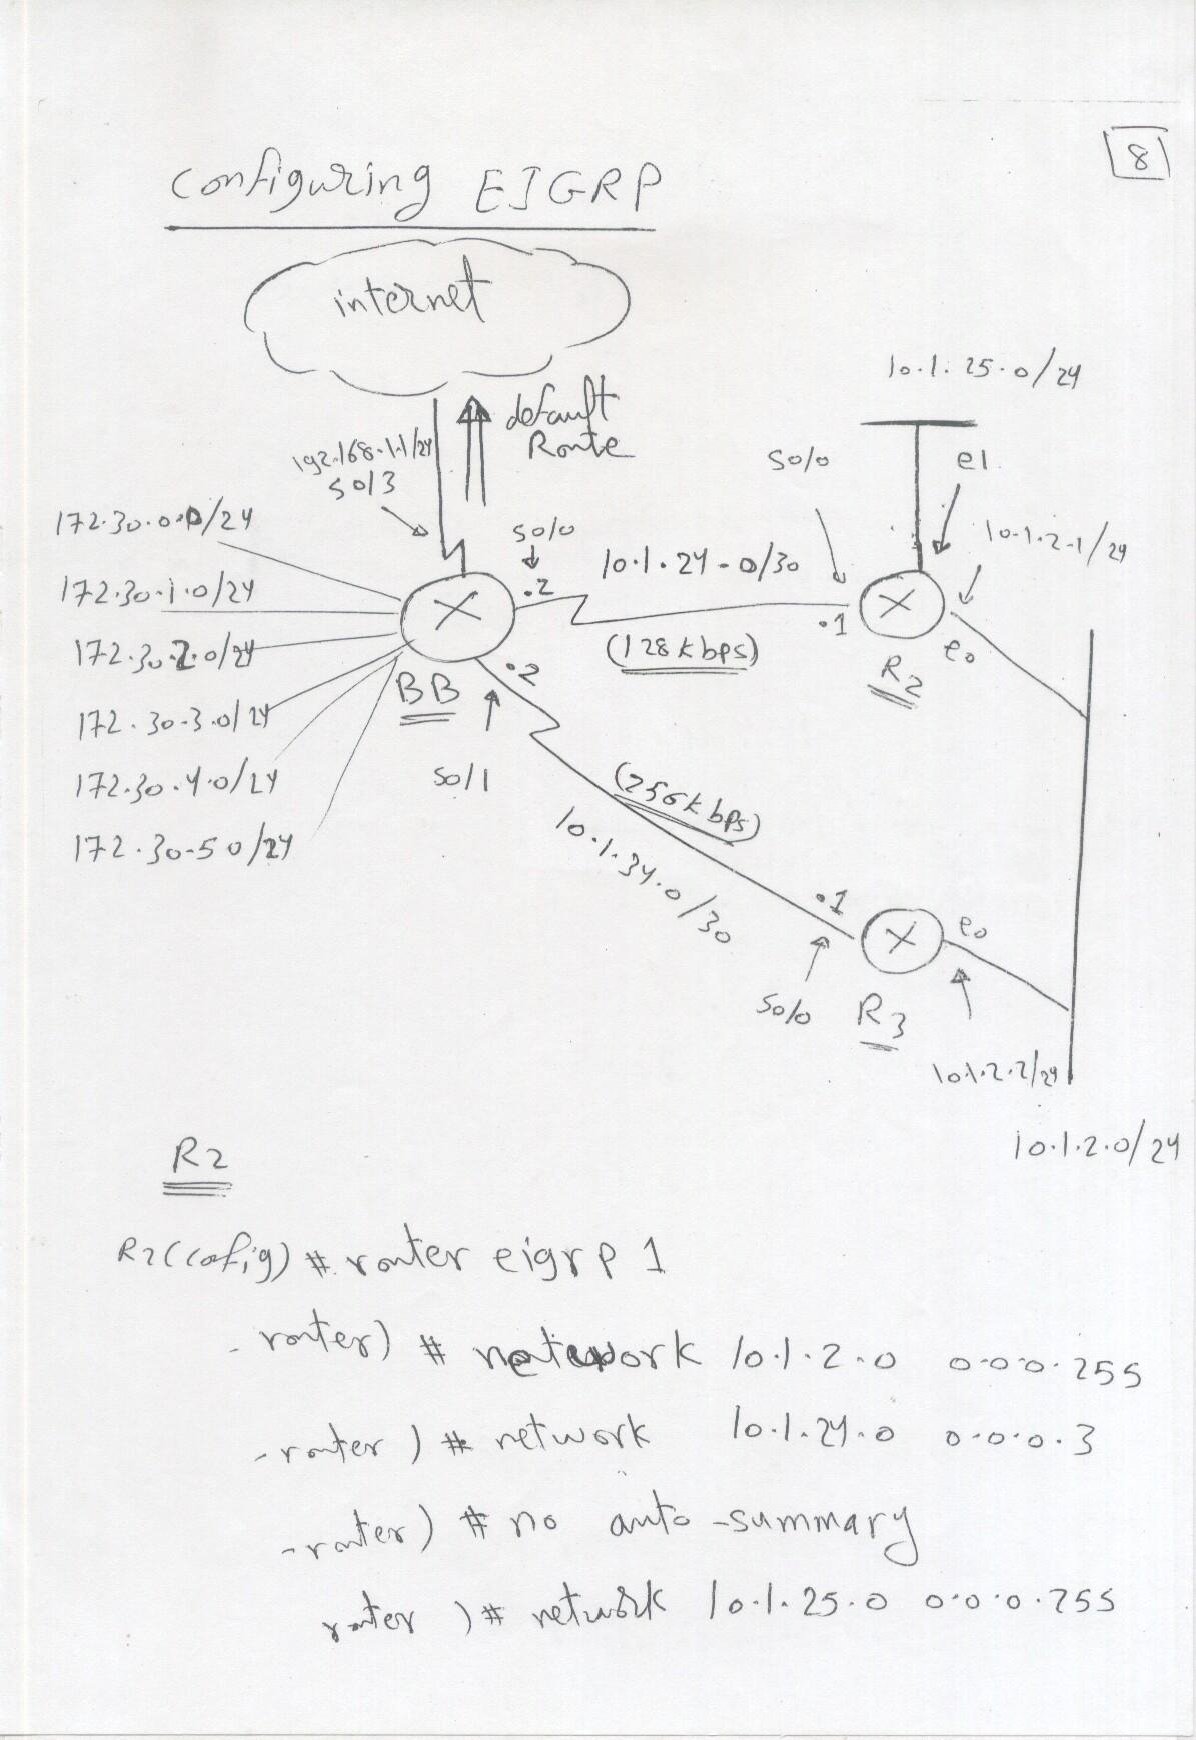 8
configuring EIGRP
internet
default
Route
192.168.1.1/24
S0/3
10.1.25.0/24
S0/0
e1
10.1.2.1/24
172.30.0.0/24
S0/0
10.1.24.0/30
.2
.1
172.30.1.0/24
(128kbps)
e0
R2
172.30.2.0/24
BB
.2
172.30.3.0/24
S0/1
172.30.4.0/24
(256kbps)
172.30.50/24
10.1.34.0/30
.1
e0
S0/0
R3
10.1.2.2/24
10.1.2.0/24
R2
R2(cofig) # router eigrp 1
-router) # network 10.1.2.0 0.0.0.255
-router) # network 10.1.24.0 0.0.0.3
-router) # no auto-summary
router) # network 10.1.25.0 0.0.0.255